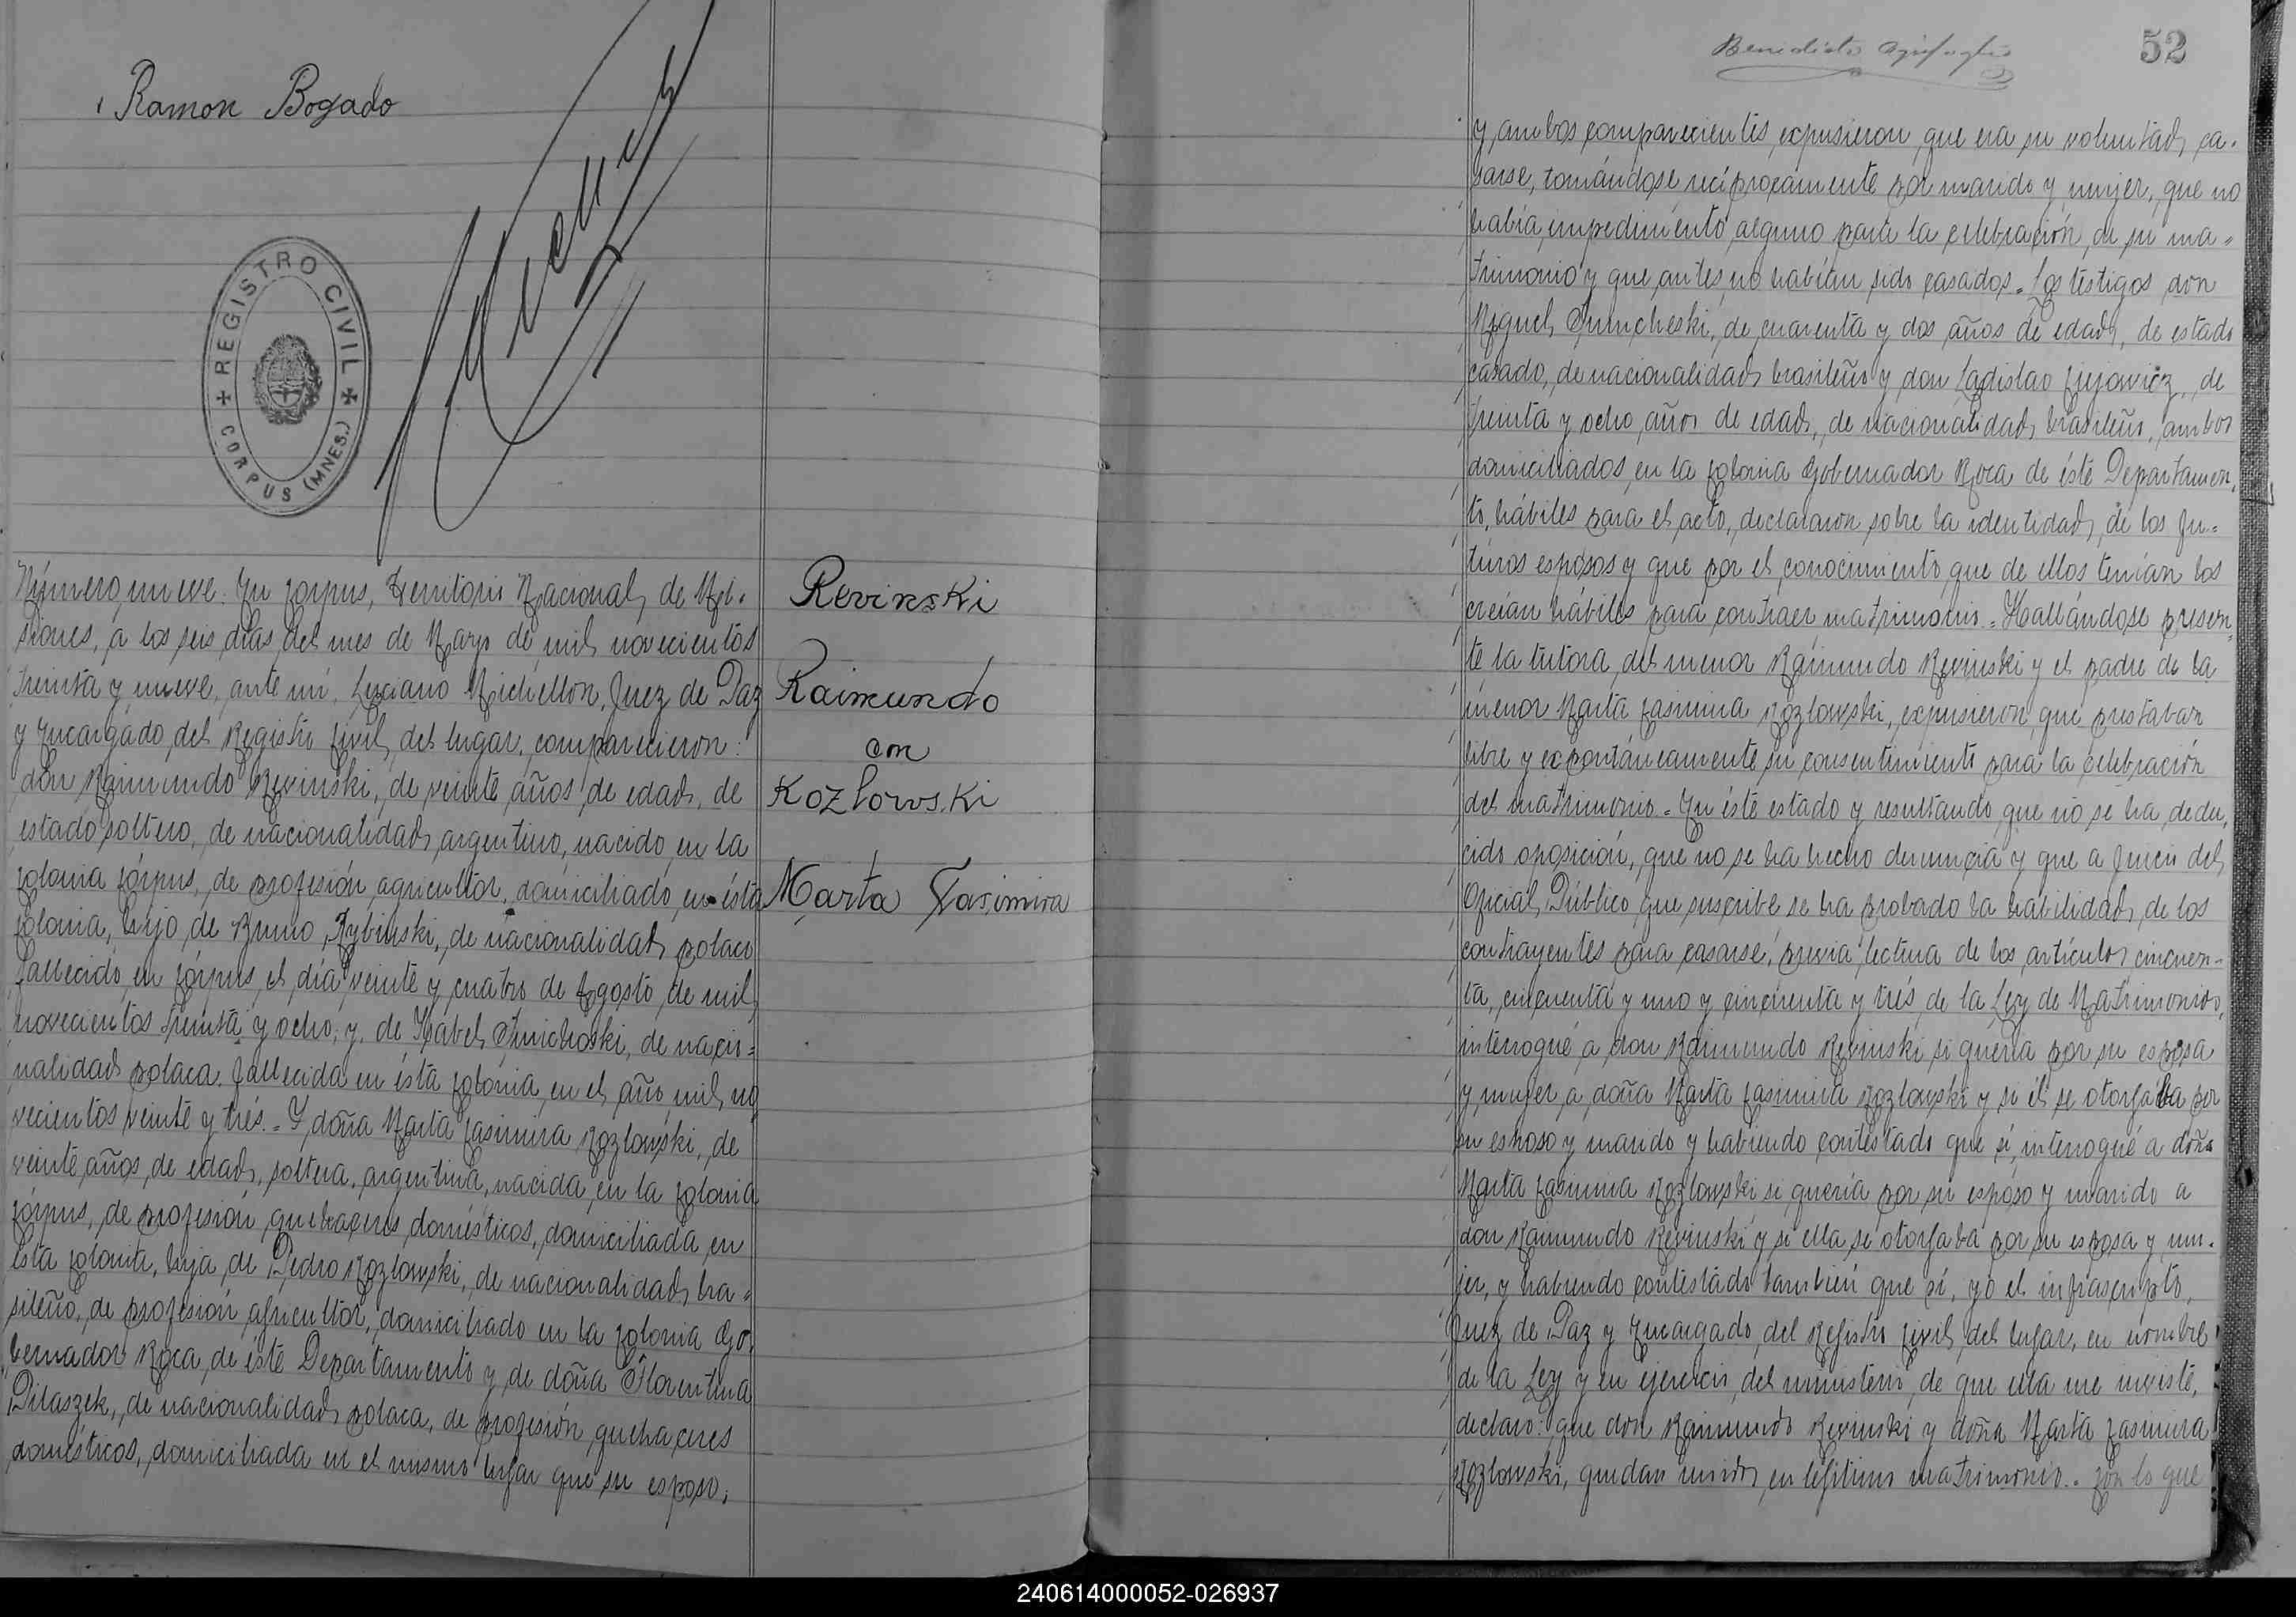 Ramon Bogado
REGISTRO CIVIL
CORPUS (MNES.)
Número nueve. En Corpus, Territorio Nacional de Mi-
siones, a los seis días del mes de Mayo de mil novecientos
treinta y nueve, ante mí, Luciano Michellon, Juez de Paz
y Encargado del Registro Civil del lugar, comparecieron:
don Raimundo Revinski, de veinte años de edad, de
estado soltero, de nacionalidad argentino, nacido en la
Colonia Córpus, de profesión agricultor, domiciliado en ésta
Colonia, hijo de Bruno Rybinski, de nacionalidad polaco
fallecido en Córpus el día veinte y cuatro de Agosto de mil
novecientos treinta y ocho y de Isabel, de nacio-
nalidad polaca, fallecida en ésta Colonia en el año mil no
vecientos veinte y trés.- Y doña Marta Casimira Kozlowski, de
veinte años de edad, soltera, argentina, nacida en la Colonia
Córpus, de profesión quehaceres domésticos, domiciliada en
ésta Colonia, hija de Pedro Kozlowski, de nacionalidad bra-
sileño, de profesión agricultor, domiciliado en la Colonia Go-
bernador Roca, de éste Departamento y de doña Florentina
Pilaszek, de nacionalidad polaca, de profesión quehaceres
domésticos, domiciliada en el mismo lugar que su esposo,
Revinski
Raimundo
con
Kozlowski
Marta Casimira
52
Benedicto
y ambos comparecientes expusieron que era su voluntad ca-
sarse, tomándose recíprocamente por marido y mujer, que no
había impedimento alguno para la celebración de su ma-
trimonio y que antes no habían sido casados.- Los testigos don
Miguel, de cuarenta y dos años de edad, de estado
casado, de nacionalidad brasileño y don Ladislao, de
treinta y ocho años de edad, de nacionalidad brasileño, ambos
domiciliados en la Colonia Gobernador Roca de éste Departamen-
to, hábiles para el acto, declararon sobre la identidad de los fu-
turos esposos y que por el conocimiento que de ellos tenían los
creían hábiles para contraer matrimonio.- Hallándose presen-
te la tutora del menor Raimundo Revinski y el padre de la
menor Marta Casimira Kozlowski, expusieron que prestaban
libre y expontáneamente su consentimiento para la celebración
del matrimonio.- En éste estado y resultando que no se ha dedu-
cido oposición, que no se ha hecho denuncia y que a juicio del
Oficial Público que suscribe se ha probado la habilidad de los
contrayentes para casarse, previa lectura de los artículos cincuen-
ta, cincuenta y uno y cincuenta y trés de la Ley de Matrimonio,
interrogué a don Raimundo Revinski si quería por su esposa
y mujer a doña Marta Casimira Kozlowski y si él se otorgaba por
su esposo y marido y habiendo contestado que sí, interrogué a doña
Marta Casimira Kozlowski si quería por su espóso y marido a
don Raimundo Revinski y si ella se otorgaba por su esposa y mu-
jer, y habiendo contestado también que sí, yo el infrascripto,
Juez de Paz y Encargado del Registro Civil del lugar, en nombre
de la Ley y en ejercicio del ministerio de que ella me inviste,
declaro: que don Raimundo Revinski y doña Marta Casimira
Kozlowski, quedan unidos en legítimo matrimonio.- Con lo que
240614000052-026937